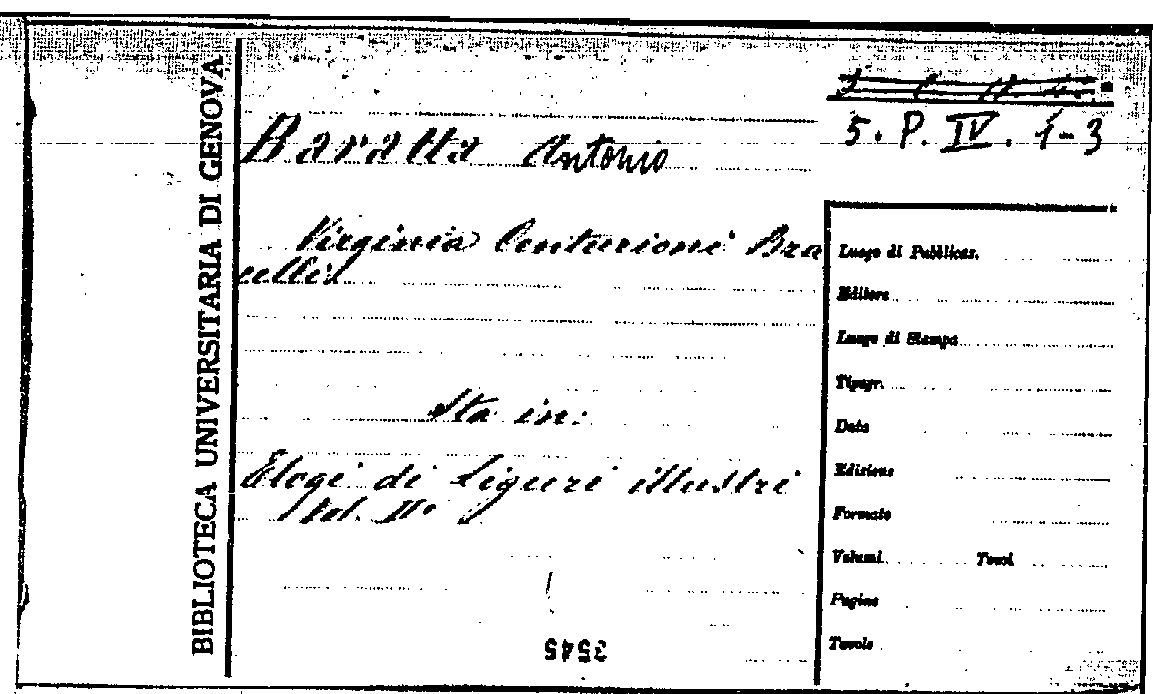 BIBLIOTECA UNIVERSITARIA DI GENOVA
5. P. IV. 1-3
Baratta Antonio
Virginia Centurione Bra
celli
Sta in:
Elogi di Liguri illustri
Vol. II°
3545
Luogo di Pubblicaz.
Editore
Luogo di Stampa
Tipogr.
Data
Edizione
Formato
Volumi Tomi
Pagine
Tavole